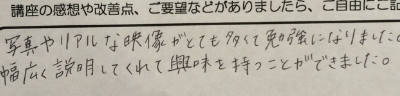 講座の感想や改善点、ご要望などがありましたら、ご自由にご記
写真やリアルな映像がとても多くて勉強になりました。
幅広く説明してくれて興味を持つことができました。